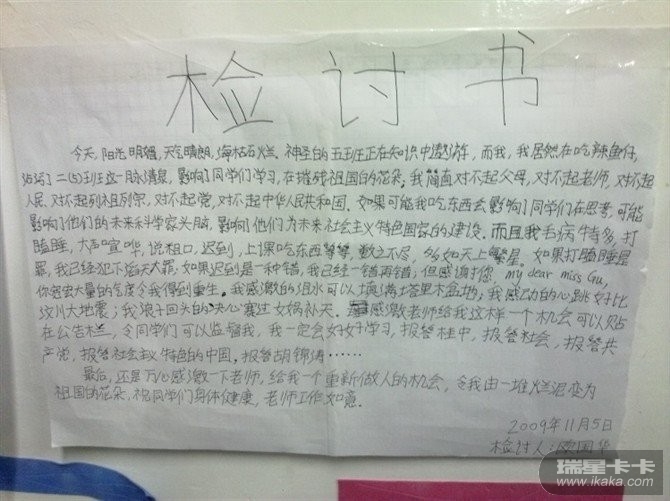 检讨书
今天,阳光明媚,天气晴朗,海枯石烂。神圣的五班正在知识中遨游,而我,我居然在吃辣鱼仔,
沾污了二(5)班这一脉清泉,影响了同学们学习,在摧残祖国的花朵;我简直对不起父母,对不起老师,对不起
人民,对不起列祖列宗,对不起党,对不起中华人民共和国,如果可能我吃东西会影响了同学们在思考,可能
影响了他们的未来科学家头脑,影响了他们为未来社会主义特色国家的建设。而且我毛病特多,打
瞌睡,大声喧哗,说粗口,迟到,上课吃东西等等,数之不尽,多如天上繁星。如果打瞌睡是
罪,我已经犯下滔天大罪;如果迟到是一种错,我已经一错再错;但感谢您,my dear miss Gu,
您宽宏大量的气度令我得到重生。我感激的泪水可以填满塔里木盆地;我感动的心跳好比
汶川大地震;我浪子回头的决心赛过女娲补天。感激老师给我这样一个机会可以贴
在公告栏,令同学们可以监督我,我一定会好好学习,报答桂中,报答社会,报答共
产党,报答社会主义特色的中国,报答胡锦涛……
最后,还是万心感激一下老师,给我一个重新做人的机会,令我由一堆烂泥变为
祖国的花朵,祝同学们身体健康,老师工作如意。
2009年11月5日
检讨人:国华
瑞星卡卡
www.ikaka.com